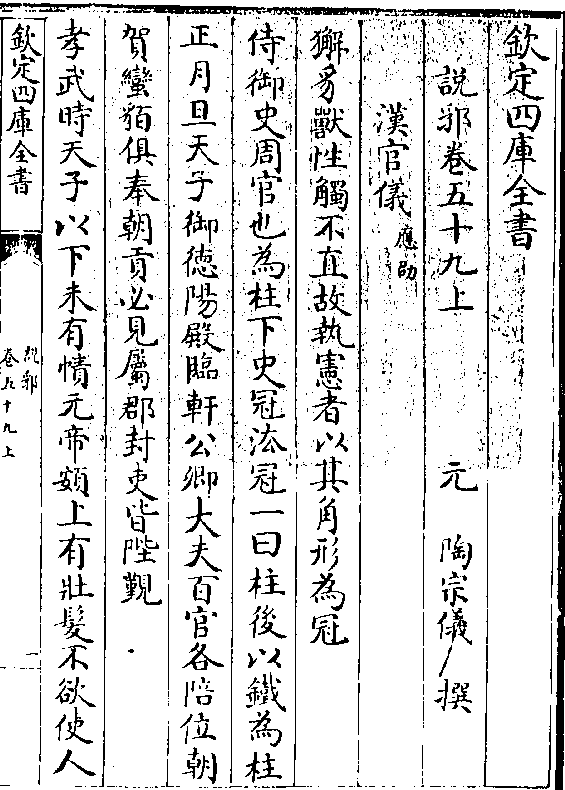 欽定四庫全書
說郛卷五十九上　元　陶宗儀　撰
漢官儀應劭
獬豸獸性觸不直故執憲者以其角形為冠
侍御史周官也為柱下史冠法冠一曰柱後以鐵為柱
正月旦天子御徳陽殿臨軒公卿大夫百官各陪位朝
賀蠻貊俱奉朝貢必見屬郡封吏皆陛覲
孝武時天子以下未有幘元帝頟上有壯髮不欲使人
欽定四庫全書
說郛
卷五十九上
一